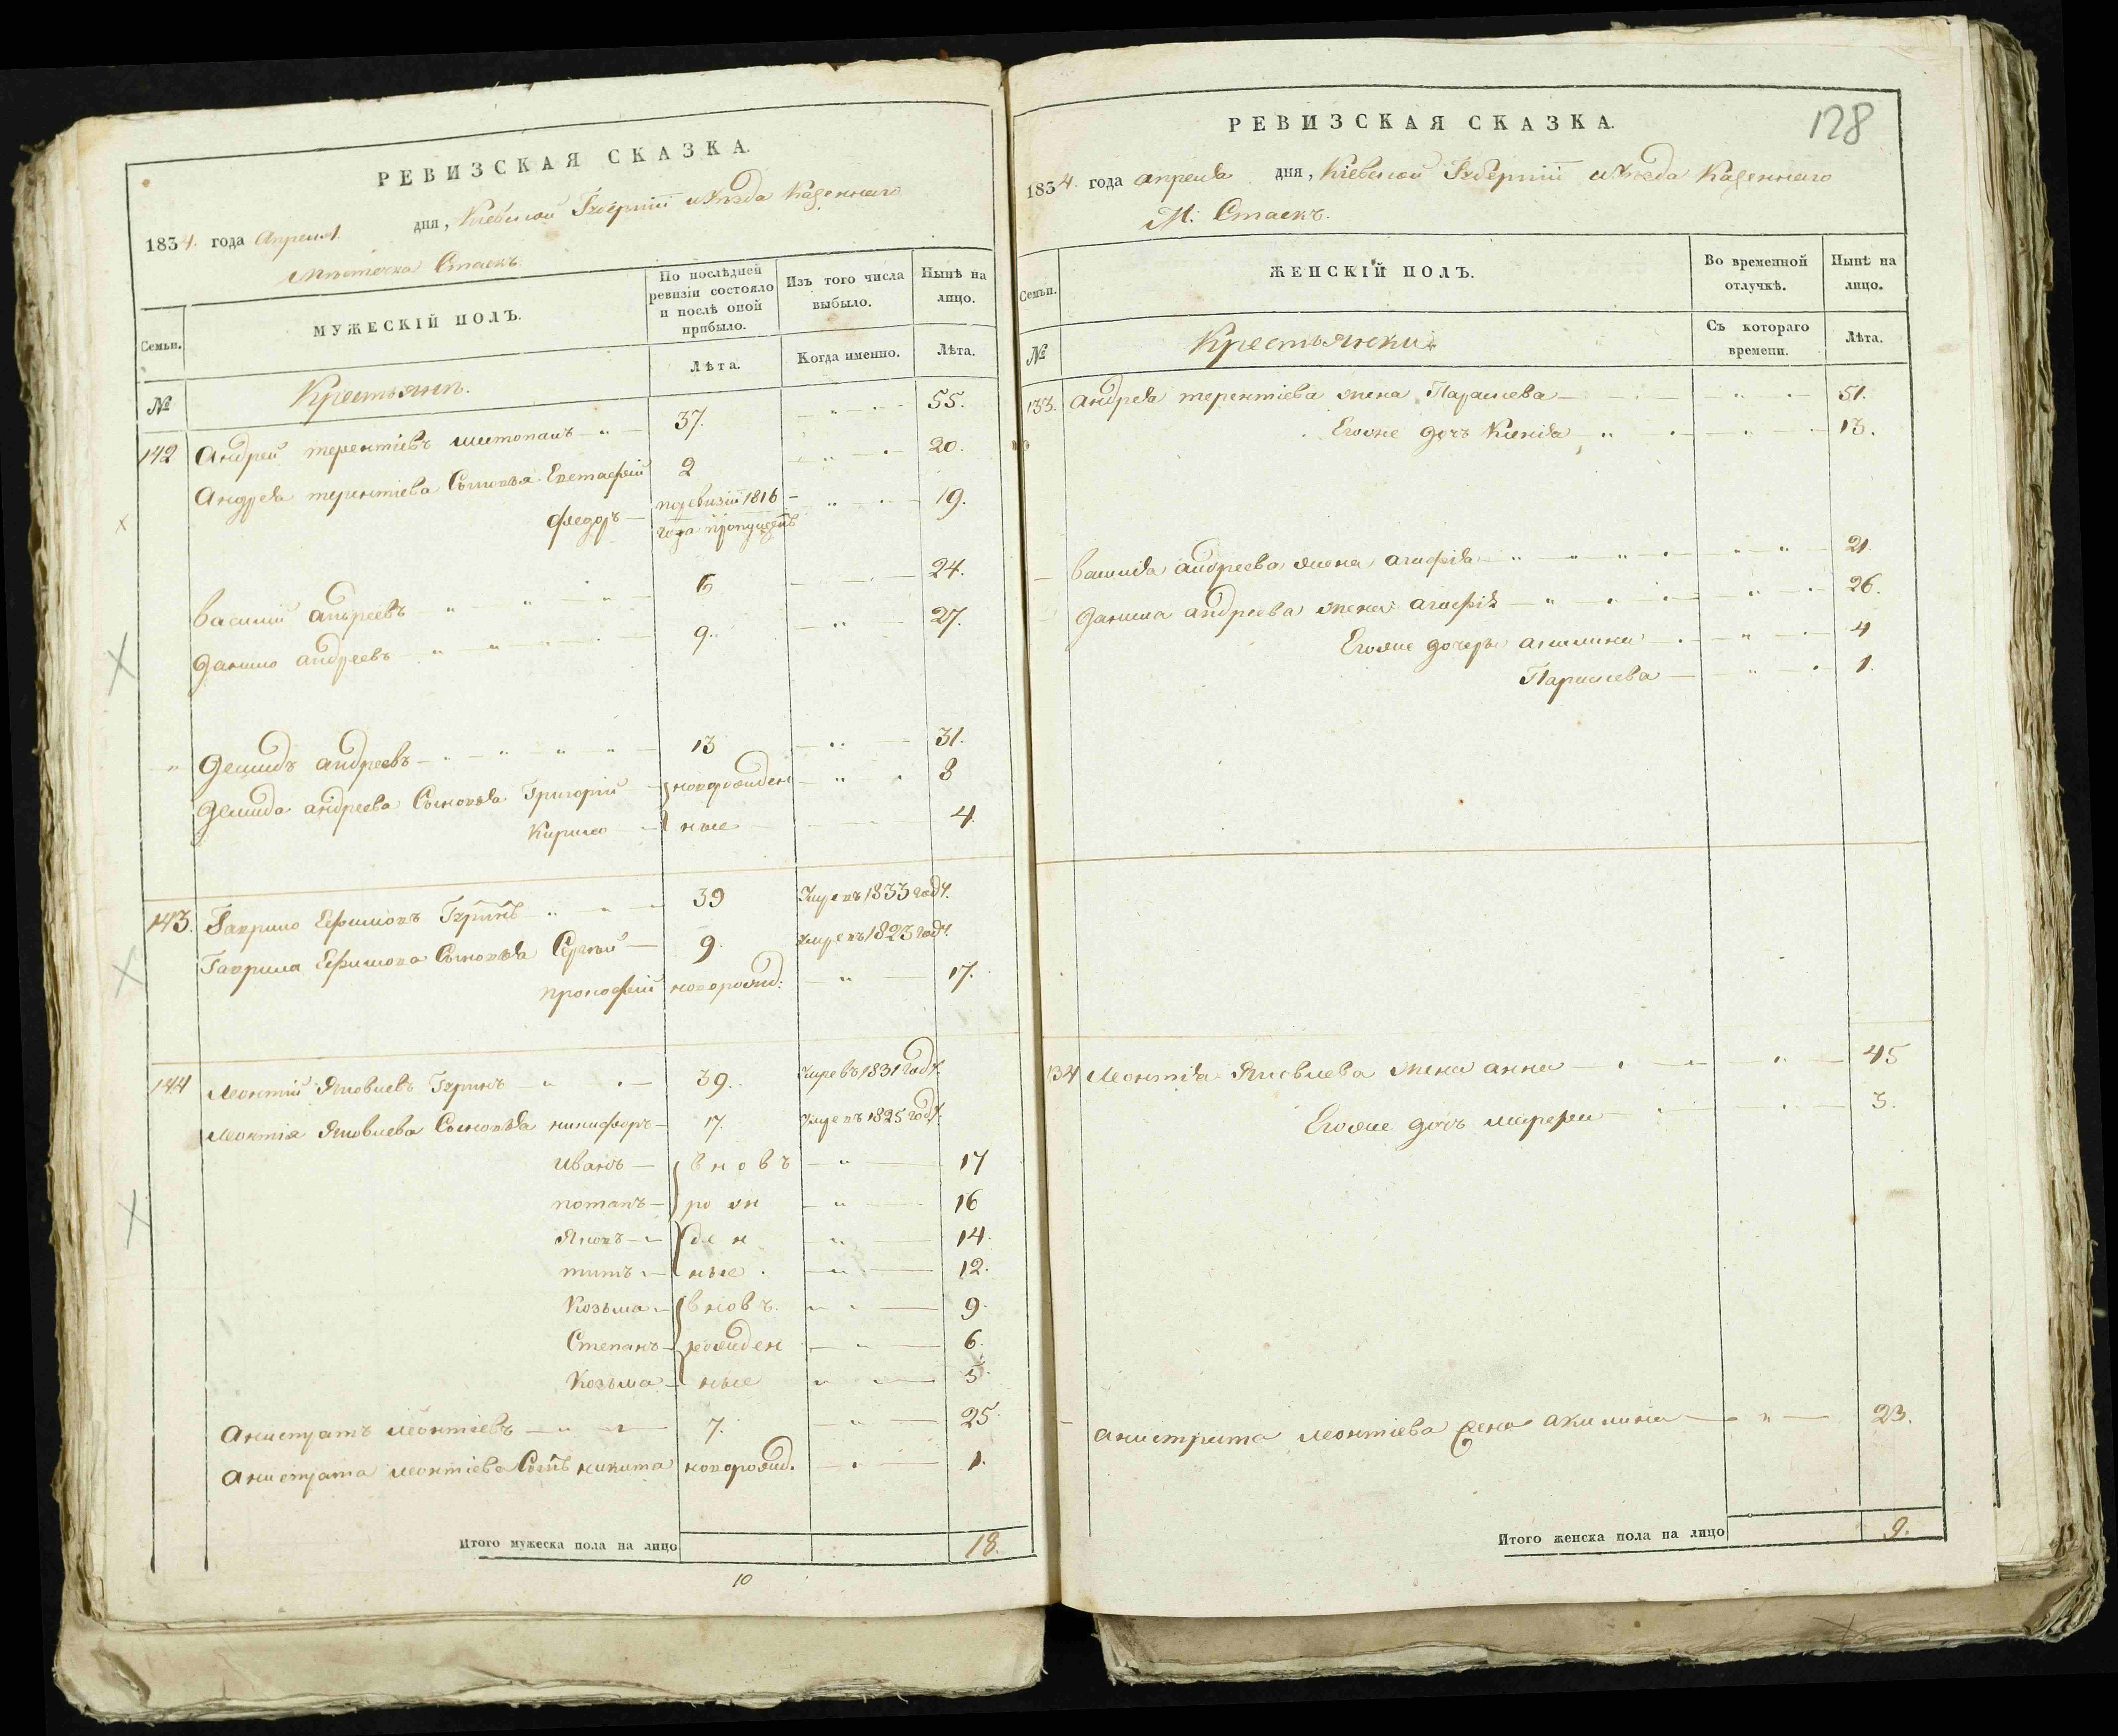 РЕВИЗСКАЯ СКАЗКА.
1834. года Апреля. дня, Кіевской Губерніи и Уѣзда Казеннаго
Мѣстечка Стаекъ.
Семьи.
МУЖЕСКІЙ ПОЛЪ.
По послѣдней ревизіи состояло и послѣ оной прибыло.
Изъ того числа выбыло.
Нынѣ на лицо.
Лѣта.
Когда именно.
Лѣта.
№
Крестьяне.
142 Андрей терентіевъ 37. 55.
Андрея терентіева Сыновья Евстафій 2 20.
Федоръ поревизіи 1816 года пропущенъ 19.
Василий андреевъ 6 24.
Данило андреевъ 9. 27.
Демидъ андреевъ 13 31.
Демида андреева Сыновья Григорій новорожден 8
Кирило ные 4.
143. Гаврило Ефимовъ Гуринъ 39 Умре въ 1833 году.
Гаврила Ефимова Сыновья Сергѣй 9. Умре въ 1823 году.
прокофій новорожд: 17.
144 Леонтий Яковлевъ Гуринъ 39. Умре въ 1831 году.
Леонтія Яковлева Сыновья никифоръ 17. Умре въ 1825 году.
Иванъ вновъ 17
потапъ рож 16
Яковъ ден 14.
титъ ные. 12.
Козьма вновъ. 9.
Степанъ рожден 6.
Козьма ные 5.
Анистратъ леонтіевъ 7. 25.
Анистрата леонтіева Сынъ никита новорожд. 1.
Итого мужеска пола на лицо 18.
10
128
РЕВИЗСКАЯ СКАЗКА.
1834. года апреля дня, Кіевской Губерніи и Уѣзда Казеннаго
М. Стаекъ.
Семьи.
ЖЕНСКІЙ ПОЛЪ.
Во временной отлучкѣ.
Нынѣ на лицо.
№
Крестьянки
Съ котораго времени.
Лѣта.
133. андрея терентіева жена Параскева 51.
Егоже дочь 13.
василя андреева жена агафія 21.
данила андреева жена агафія 26.
Егоже дочери акилина 4
Параскева 1.
134 Леонтія Яковлева жена анна 45
Егоже дочь 3.
анистрата леонтіева жена акилина 23.
Итого женска пола на лицо 9.